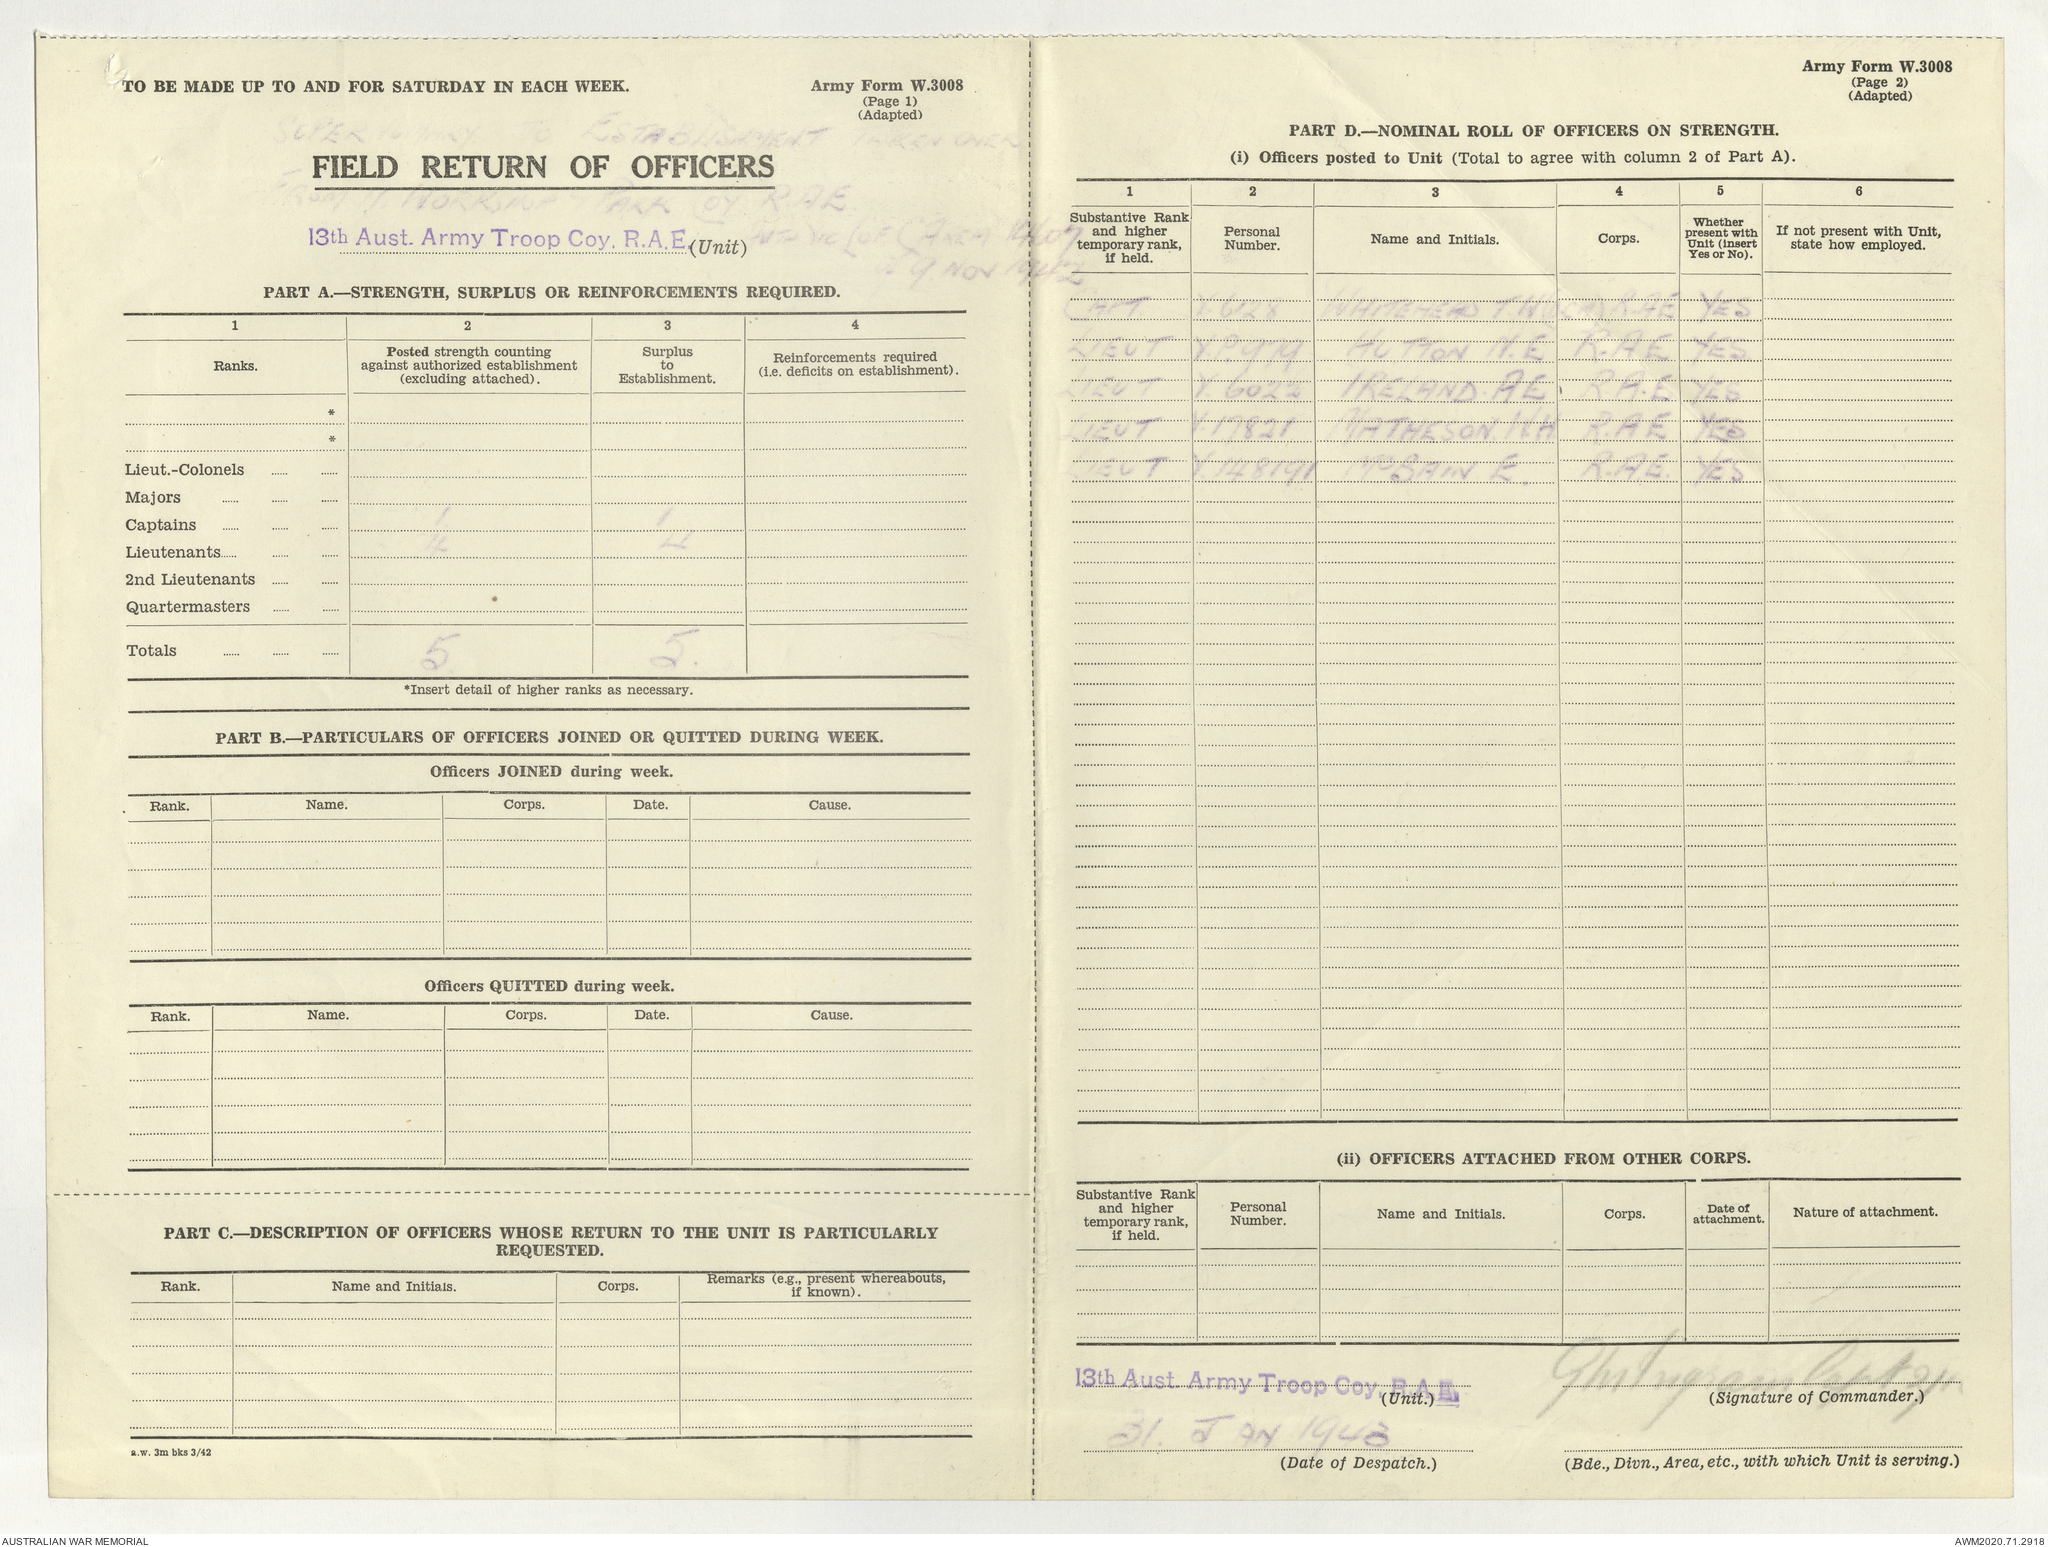 TO BE MADE UP TO AND FOR SATURDAY IN EACH WEEK.
Army Form W.3008
(Page 1)
(Adapted)
SUPERNUMARY TO ESTABLISHMENT TAKEN OVER
FIELD RETURN OF OFFICERS
FROM WORKSHOP & PARK COY R.A.E.
13th Aust. Army Troop Coy, R.A.E. (Unit)
9 NOV 1942
PART A.—STRENGTH, SURPLUS OR REINFORCEMENTS REQUIRED.
1 2 3 4
Ranks. Posted strength counting against authorized establishment (excluding attached). Surplus to Establishment. Reinforcements required (i.e. deficits on establishment).
*
*
Lieut.-Colonels
Majors
Captains 1 1
Lieutenants 4 4
2nd Lieutenants
Quartermasters
Totals 5 5.
*Insert detail of higher ranks as necessary.
PART B.—PARTICULARS OF OFFICERS JOINED OR QUITTED DURING WEEK.
Officers JOINED during week.
Rank. Name. Corps. Date. Cause.
Officers QUITTED during week.
Rank. Name. Corps. Date. Cause.
PART C.—DESCRIPTION OF OFFICERS WHOSE RETURN TO THE UNIT IS PARTICULARLY
REQUESTED.
Rank. Name and Initials. Corps. Remarks (e.g., present whereabouts, if known).
a.w. 3m bks 3/42
Army Form W.3008
(Page 2)
(Adapted)
PART D.—NOMINAL ROLL OF OFFICERS ON STRENGTH.
(i) Officers posted to Unit (Total to agree with column 2 of Part A).
1 2 3 4 5 6
Substantive Rank and higher temporary rank, if held. Personal Number. Name and Initials. Corps. Whether present with Unit (insert Yes or No). If not present with Unit, state how employed.
CAPT V.6128 WHITEHEAD T.W. R.A.E YES
LIEUT HUTTON N.E R.A.E YES
LIEUT V.6022 IRELAND. A E R.A.E YES
LIEUT V.17821 MATHESON. W.H R.A.E YES
LIEUT V.148191 McBAIN E. R.A.E. YES
(ii) OFFICERS ATTACHED FROM OTHER CORPS.
Substantive Rank and higher temporary rank, if held. Personal Number. Name and Initials. Corps. Date of attachment. Nature of attachment.
13th Aust. Army Troop Coy, R.A.E.
(Unit.)
(Signature of Commander.)
31. JAN 1943
(Date of Despatch.)
(Bde., Divn., Area, etc., with which Unit is serving.)
AUSTRALIAN WAR MEMORIAL
AWM2020.71.2918